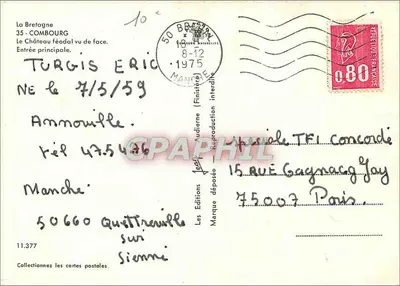 La Bretagne
35 - COMBOURG
Le Château féodal vu de face.
Entrée principale.
10
TURGIS ERIC
NE le 7/5/59
Annoville.
Tél 475476
Manche
50660 Quettreville
sur
Sienne
11.377
Collectionnez les cartes postales
50 BR
8-12
1975
MANCHE
0,80
Les Editions Jos (Finistère)
Marque déposée reproduction interdite
CPAPHIL
spéciale TF1 Concorde
15 RUE Cagnacq Jay
75007 Paris.